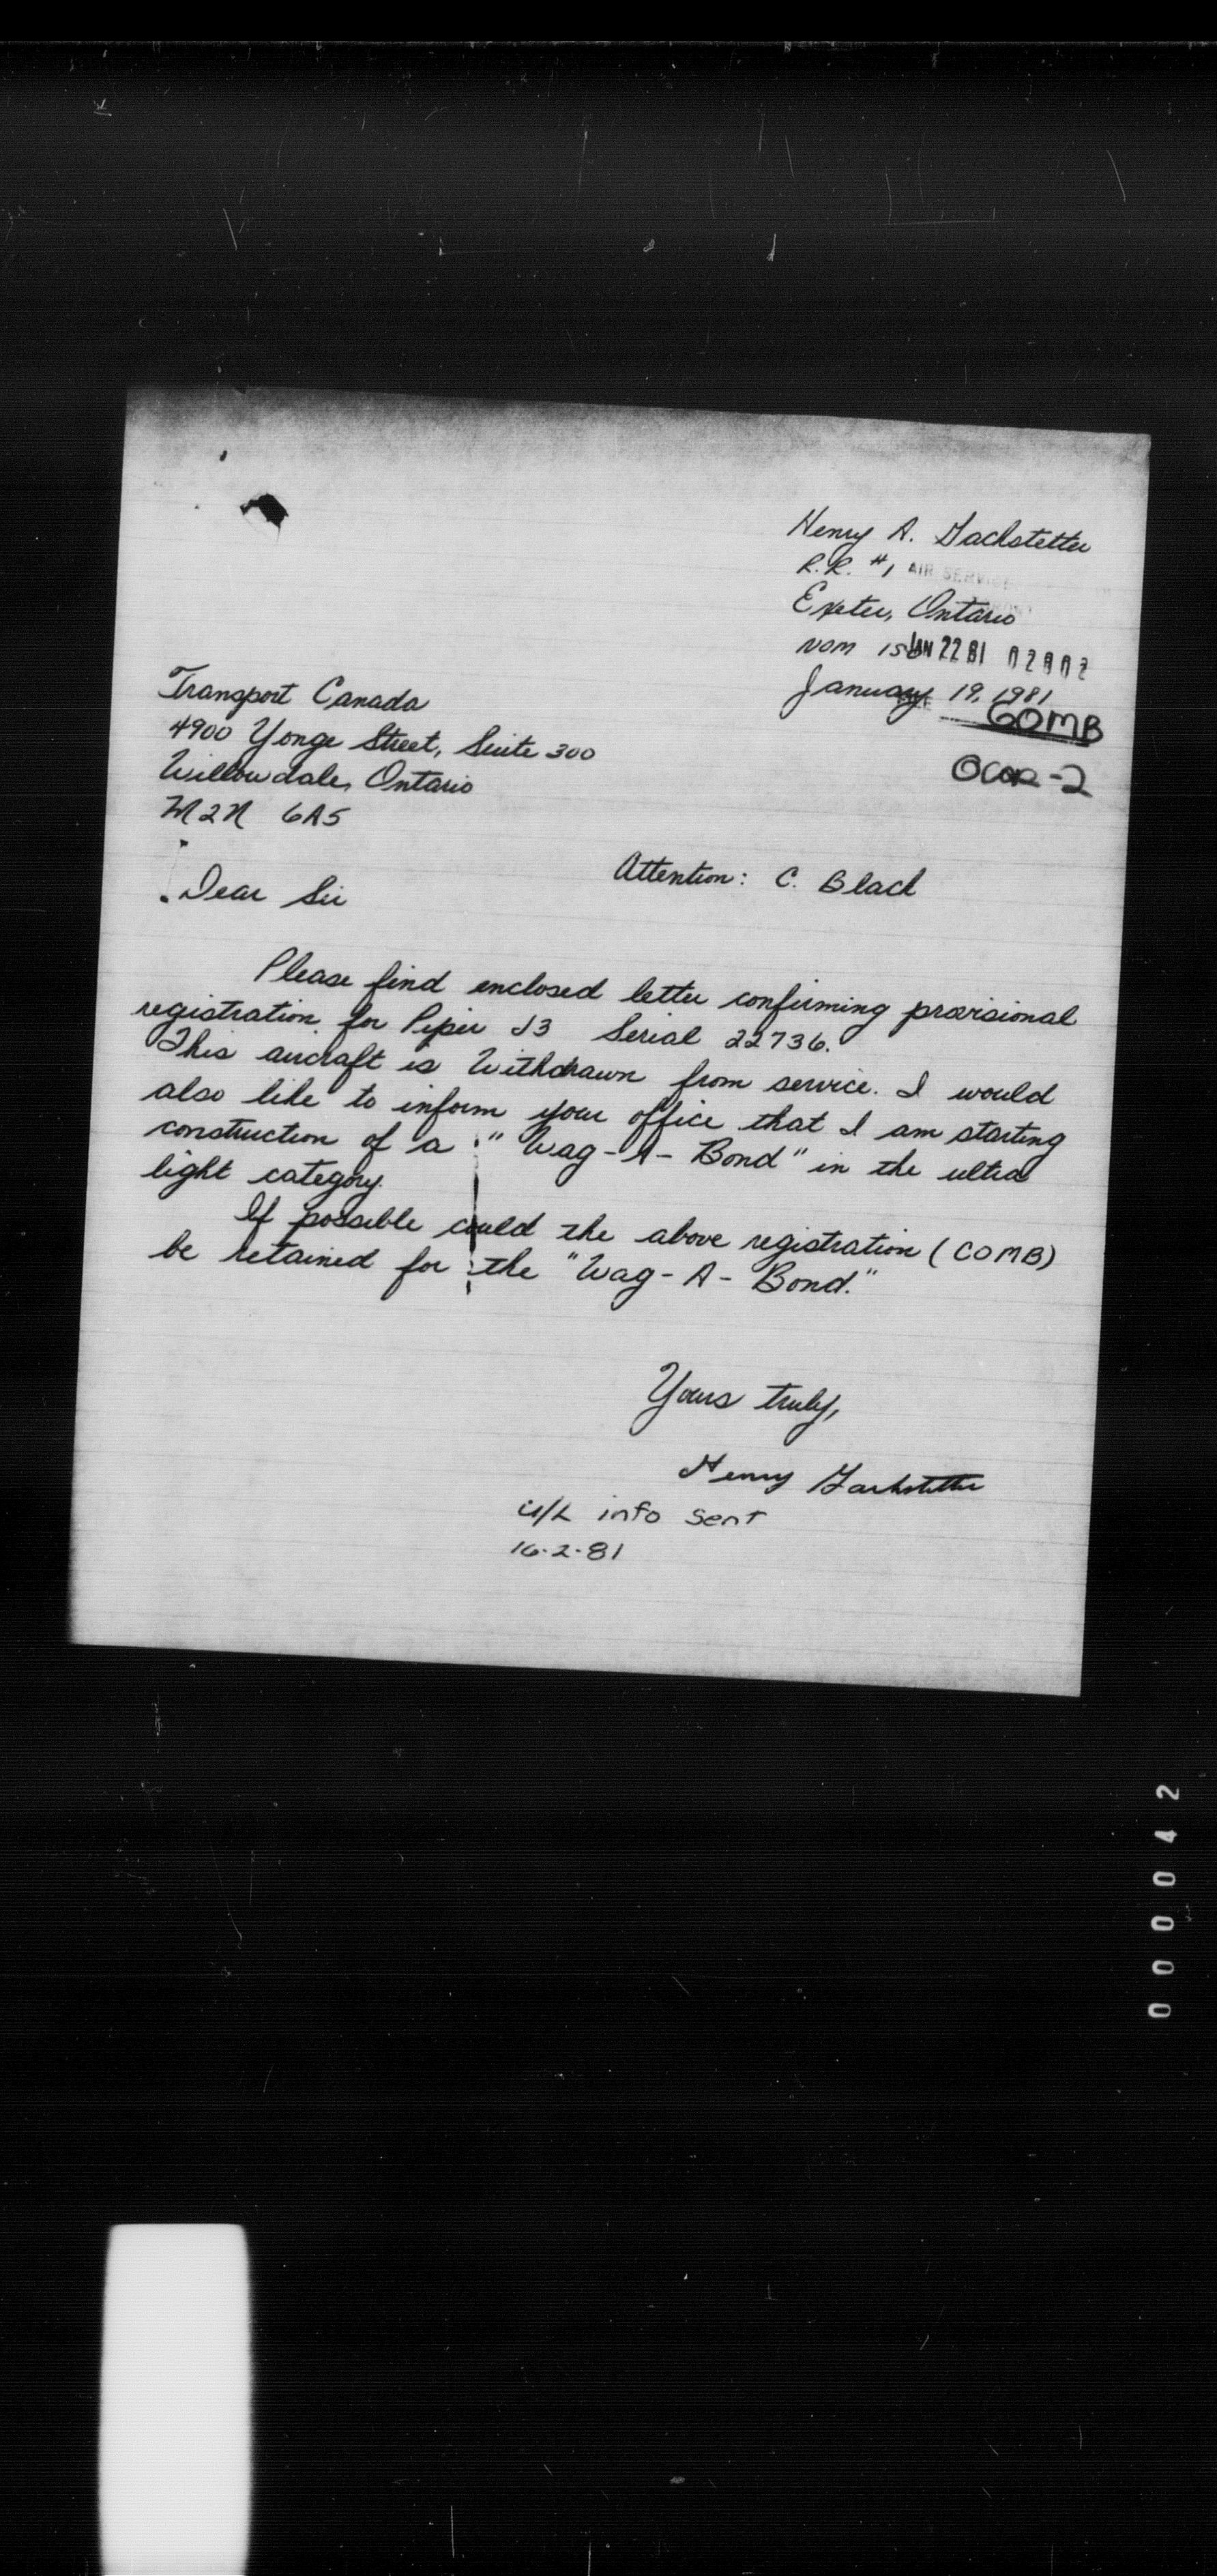 Henry A. Gackstetter
R.R. #1 AIR SERVICE
Exeter, Ontario
N0M 1S0 JAN 22 81 02802
January 19, 1981
COMB
Transport Canada
4900 Yonge Street, Suite 300
Willowdale, Ontario
M2N 6A5
Attention: C. Black
Dear Sir
Please find enclosed letter confirming provisional
registration for Piper J3 Serial 22736.
This aircraft is Withdrawn from service. I would
also like to inform your office that I am starting
construction of a "Wag-A-Bond" in the ultra
light category.
If possible could the above registration (COMB)
be retained for the "Wag-A-Bond."
Yours truly,
Henry Gackstetter
U/L info sent
16-2-81
000042